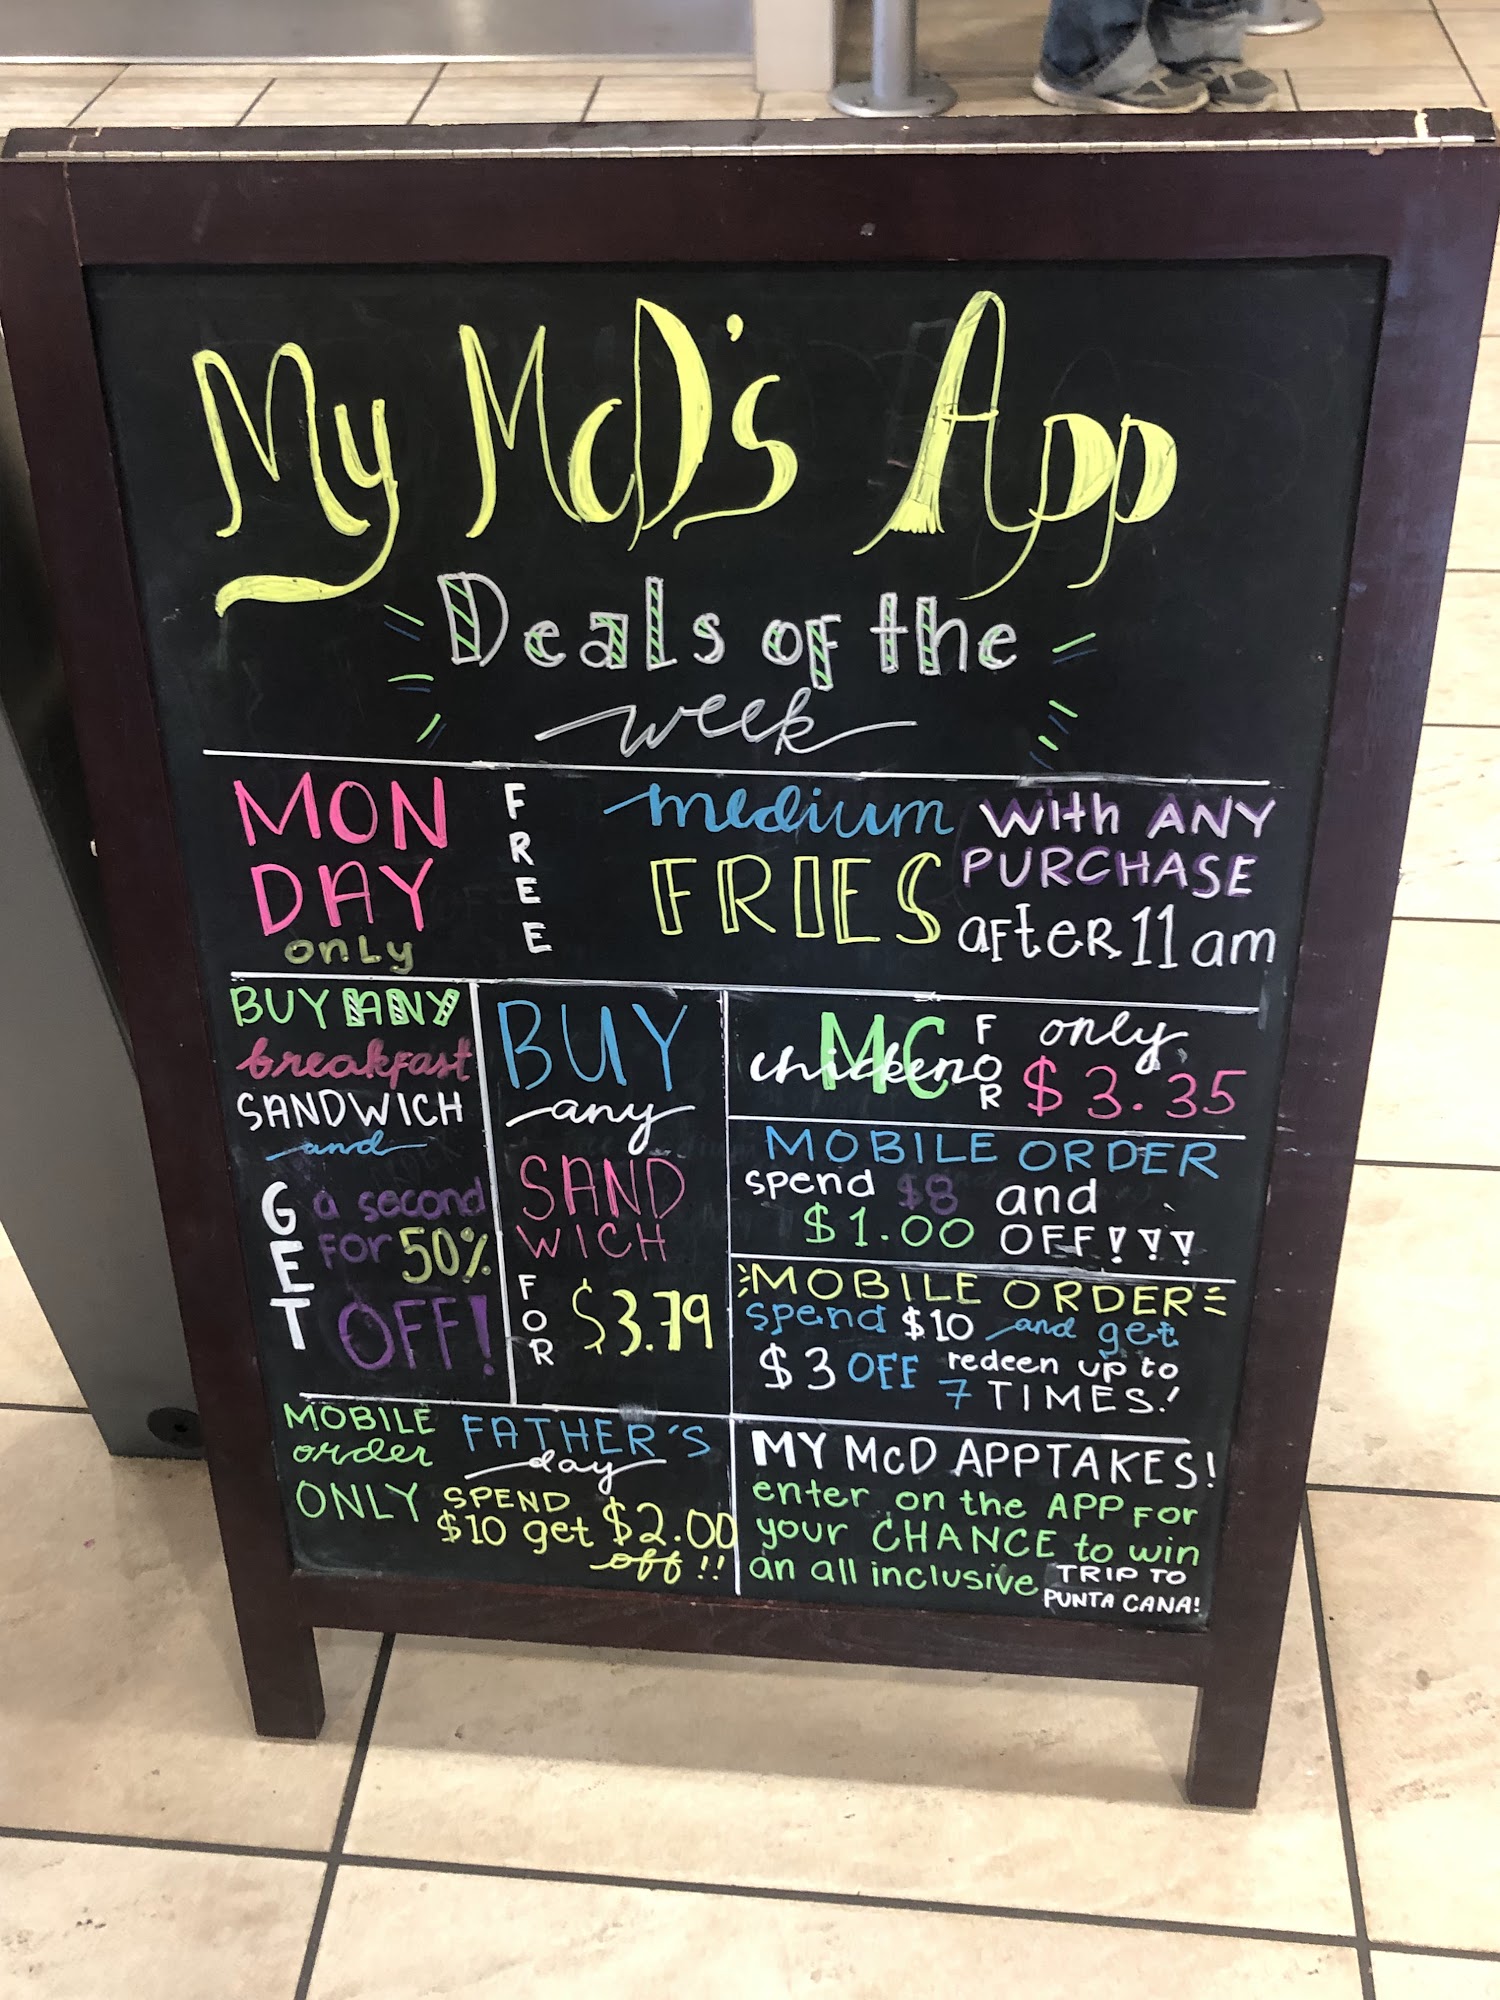 My McD's App
Deals of the
week
MON
DAY
only
FREE
medium
FRIES
with ANY
PURCHASE
after 11 am
BUY ANY
breakfast
SANDWICH
and
GET
a second
for 50%
OFF!
BUY
any
SAND
WICH
FOR
$3.79
MC
chicken
FOR
only
$3.35
MOBILE ORDER
spend $8 and
$1.00 OFF!!!
MOBILE ORDER
spend $10 and get
$3 OFF redeen up to
7 TIMES!
MOBILE
order
ONLY
FATHER'S
day
SPEND
$10 get $2.00
off!!
MY McD APPTAKES!
enter on the APP FOR
your CHANCE to win
an all inclusive TRIP TO
PUNTA CANA!